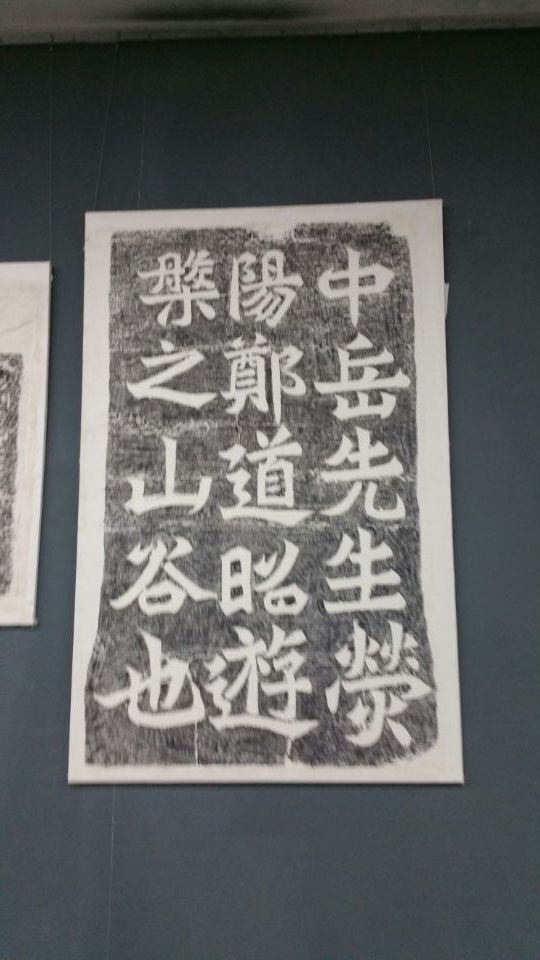 中岳先生熒
陽鄭道昭遊
槃之山谷也